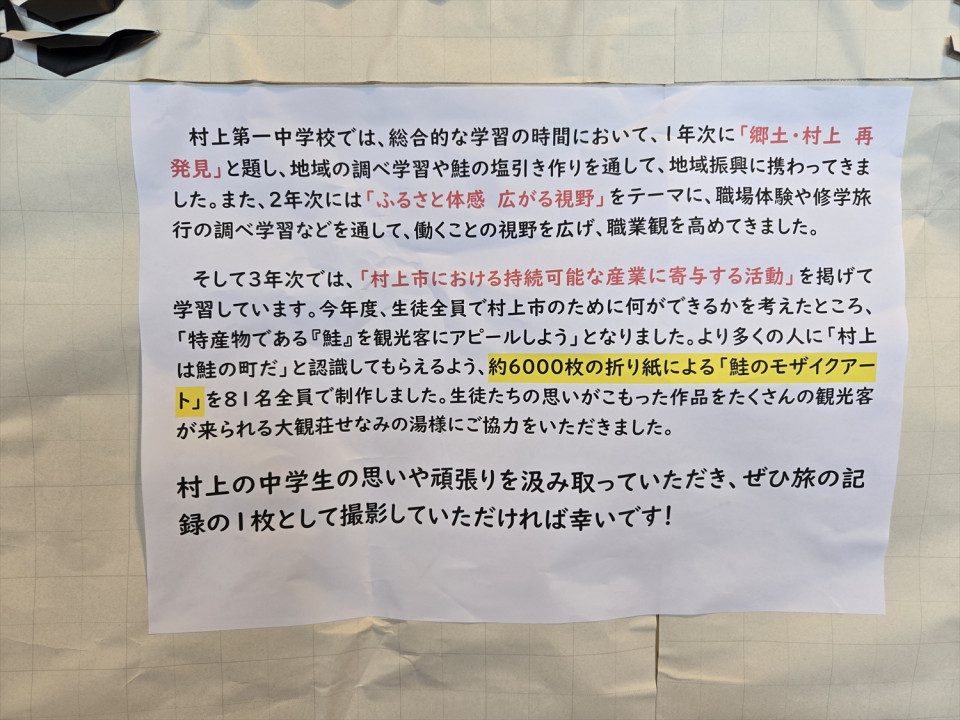 村上第一中学校では、総合的な学習の時間において、1年次に「郷土・村上 再
発見」と題し、地域の調べ学習や鮭の塩引き作りを通して、地域振興に携わってきま
した。また、2年次には「ふるさと体感 広がる視野」をテーマに、職場体験や修学旅
行の調べ学習などを通して、働くことの視野を広げ、職業観を高めてきました。
そして3年次では、「村上市における持続可能な産業に寄与する活動」を掲げて
学習しています。今年度、生徒全員で村上市のために何ができるかを考えたところ、
「特産物である『鮭』を観光客にアピールしよう」となりました。より多くの人に「村上
は鮭の町だ」と認識してもらえるよう、約6000枚の折り紙による「鮭のモザイクアー
ト」を81名全員で制作しました。生徒たちの思いがこもった作品をたくさんの観光客
が来られる大観荘せなみの湯様にご協力をいただきました。
村上の中学生の思いや頑張りを汲み取っていただき、ぜひ旅の記
録の1枚として撮影していただければ幸いです!